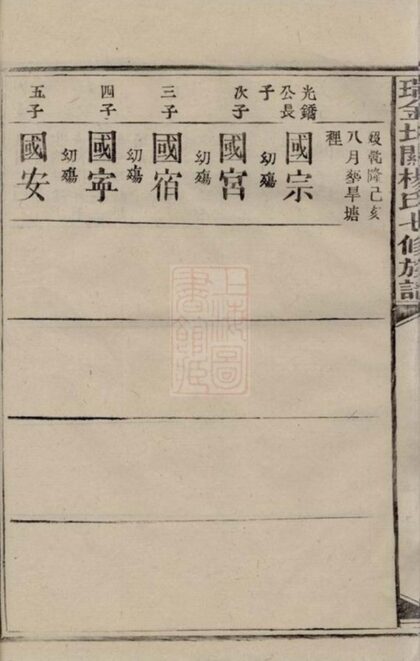 瑞金城關楊氏七修族譜
歿乾隆己亥
八月葬旱塘
裡
光鐈
公長
子
國宗
幼殤
次子
國宮
幼殤
三子
國宿
幼殤
四子
國寧
幼殤
五子
國安
上海圖
書館藏